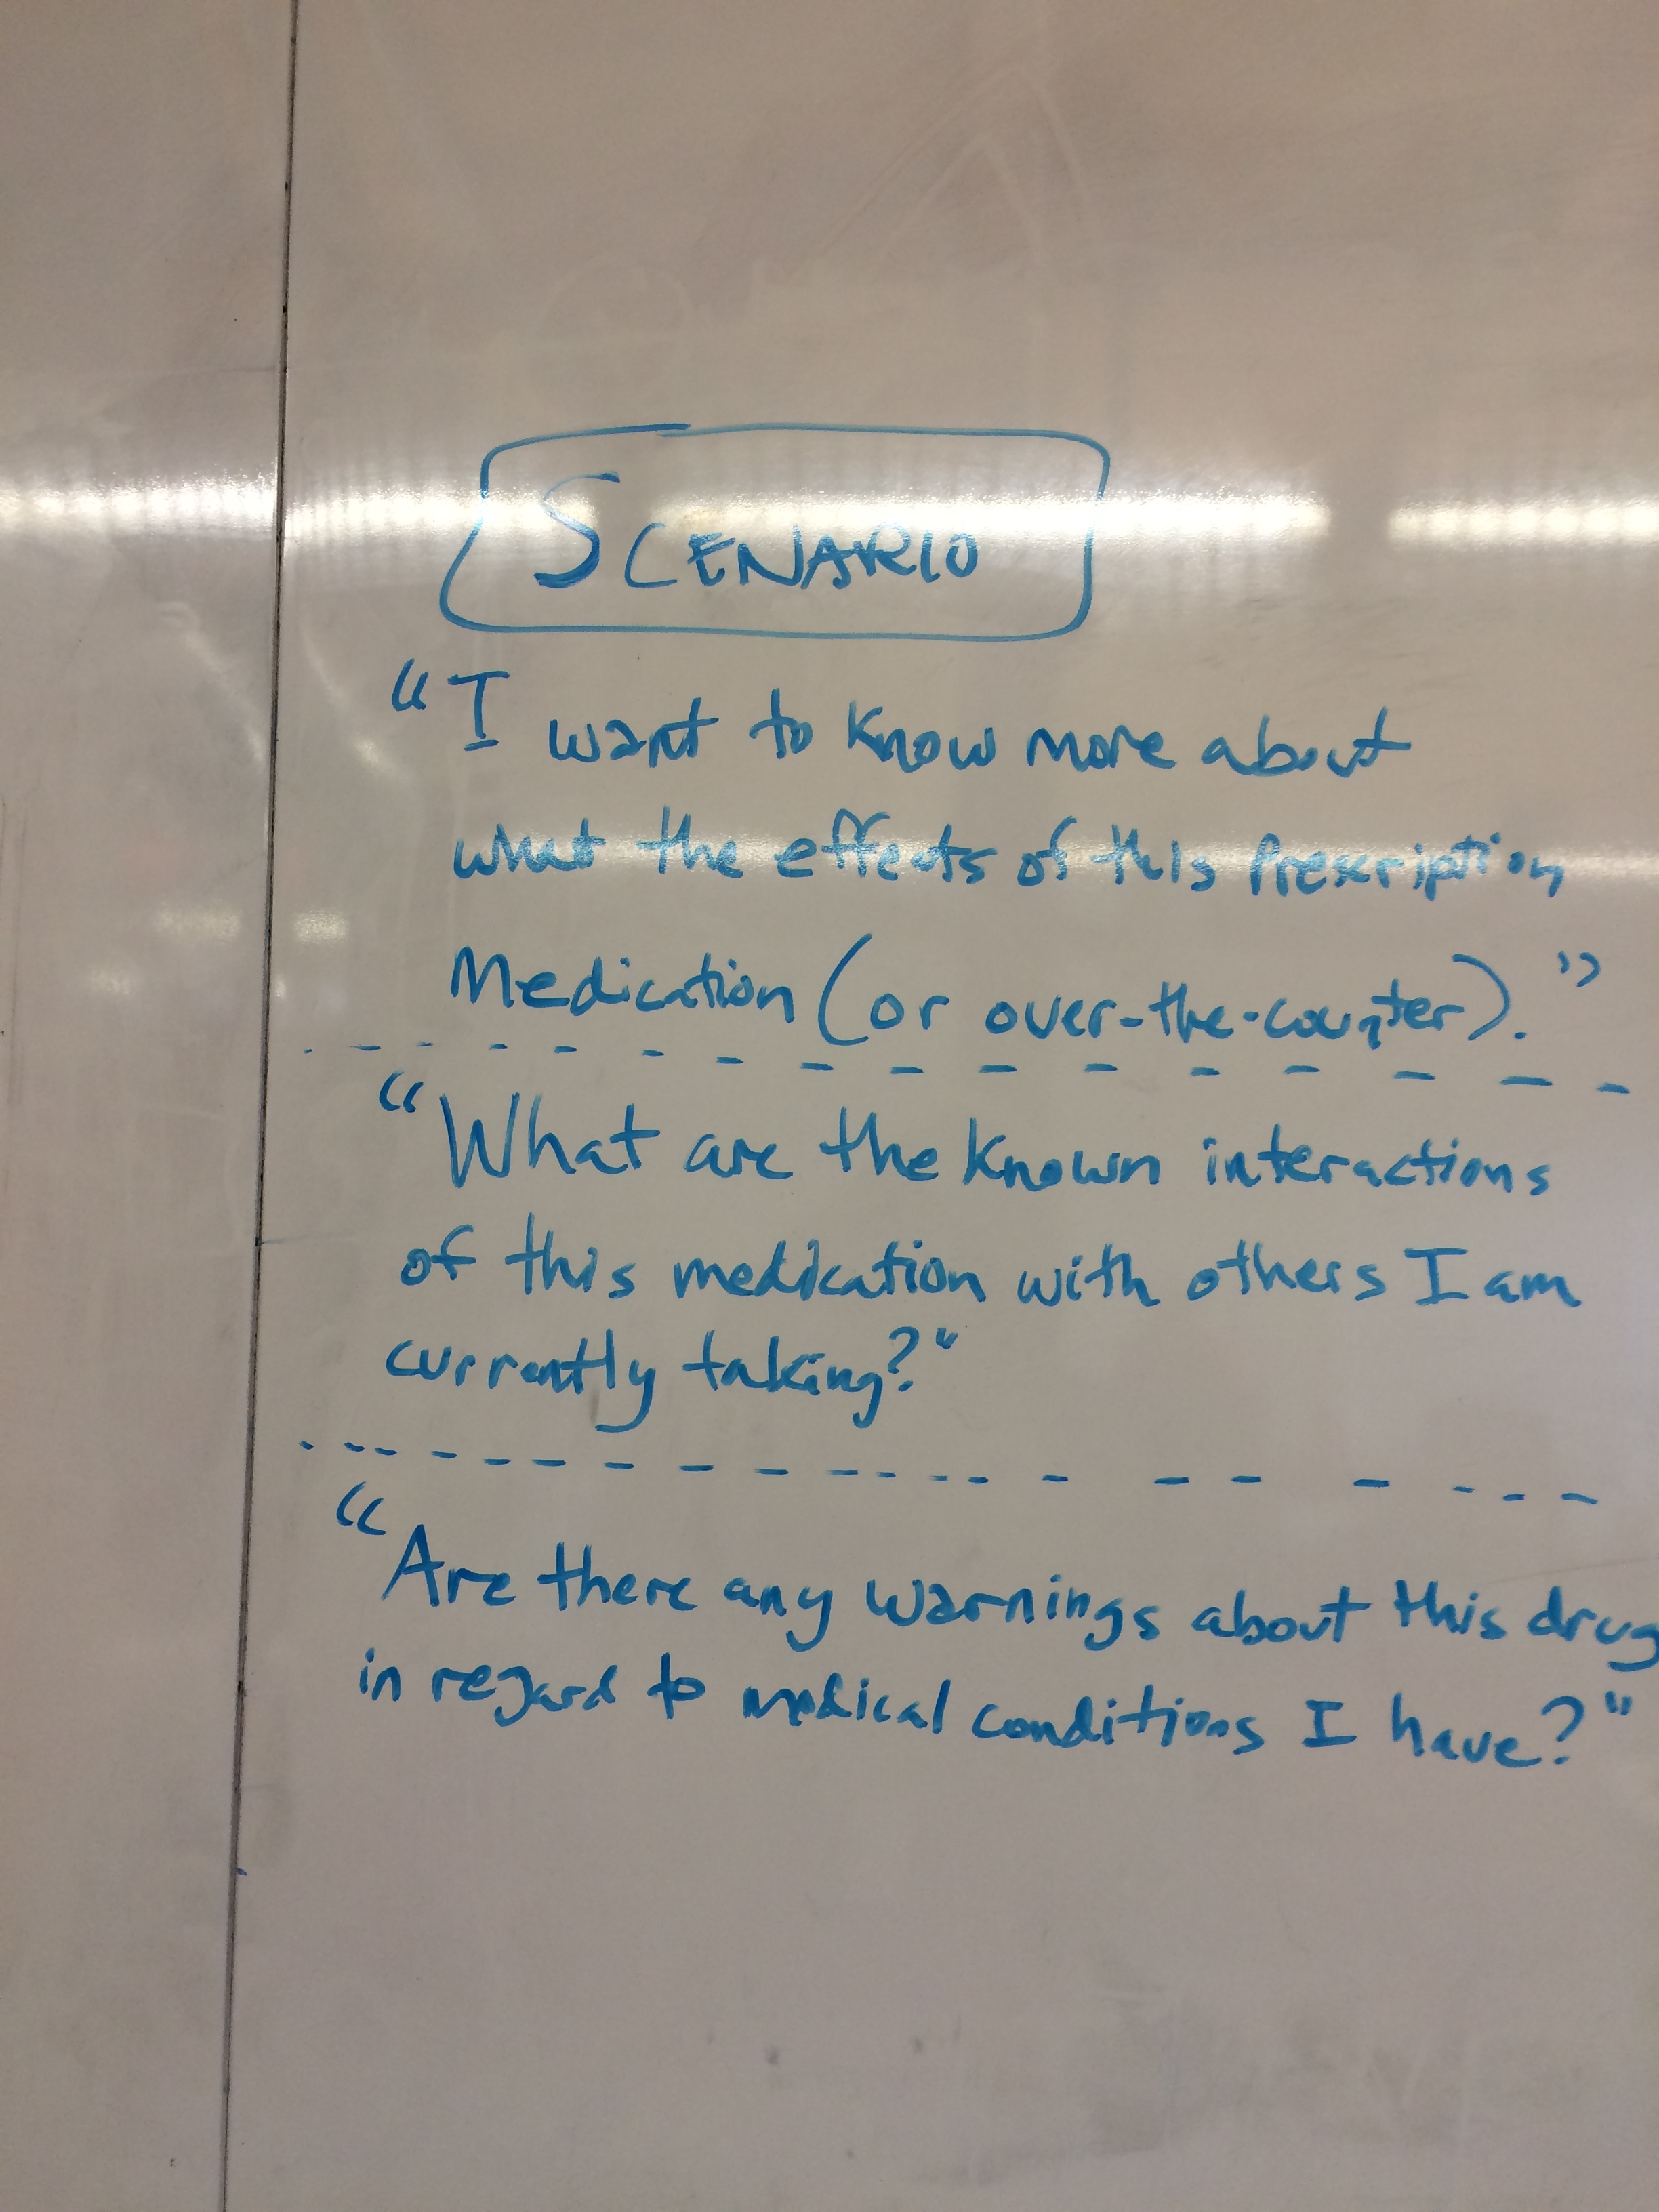 SCENARIO
"I want to know more about
what the effects of this Prescription
Medication (or over-the-counter)."
"What are the known interactions
of this medication with others I am
currently taking?"
"Are there any warnings about this drug
in regard to medical conditions I have?"